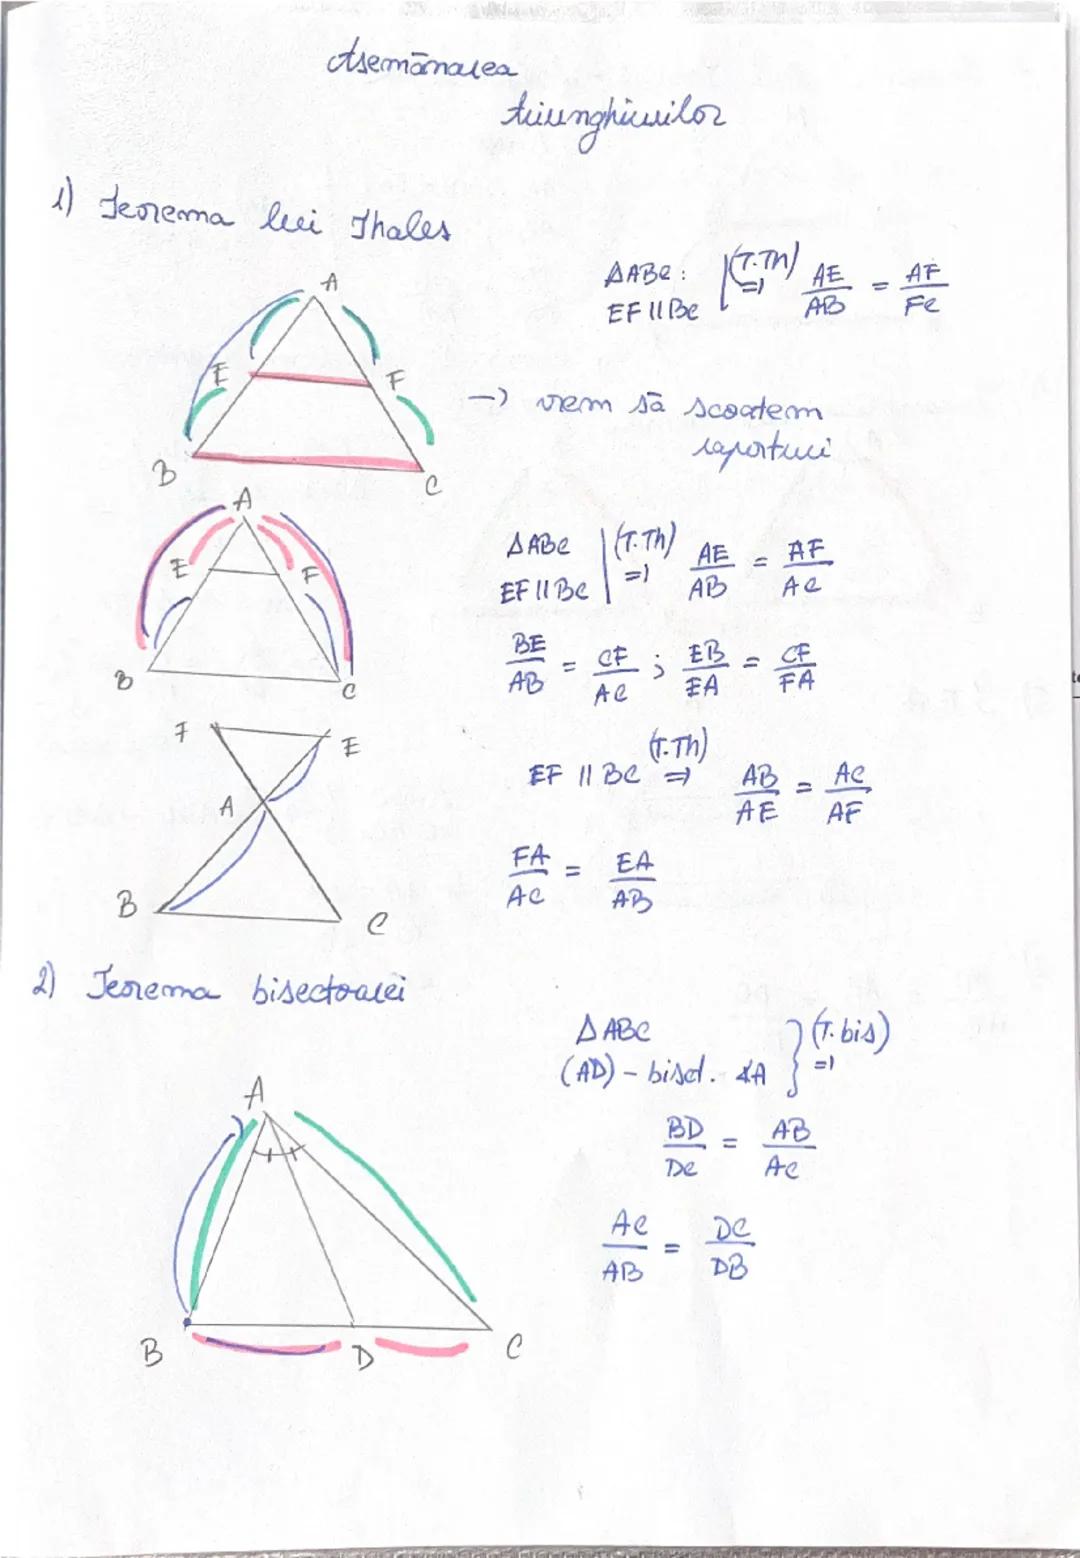 Asemănarea
triunghiurilor
1) Teorema lui Thales
A
E
F
B
C
ΔABC :
EF || BC
(T.Th)
=)
AE/AB = AF/FC
-) vrem să scoatem
raporturi
A
E
F
B
C
ΔABC
EF || BC
(T.Th)
=)
AE/AB = AF/AC
BE/AB = CF/AC ; EB/EA = CF/FA
F
E
A
B
C
(T.Th)
EF || BC => AB/AE = AC/AF
FA/AC = EA/AB
2) Teorema bisectoarei
A
B
D
C
Δ ABC
(AD) – bisect. ∢A
} (T. bis)
=)
BD/DC = AB/AC
AC/AB = DC/DB